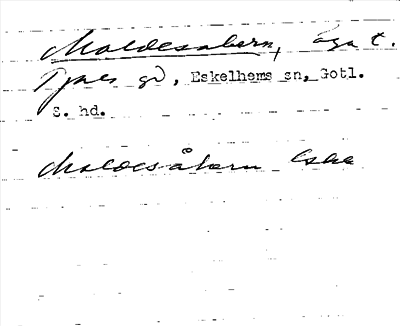 Moldesåkern, äga t.
Tjels gd, Eskelhems sn, Gotl.
S. hd.
Moldesåkern Eske